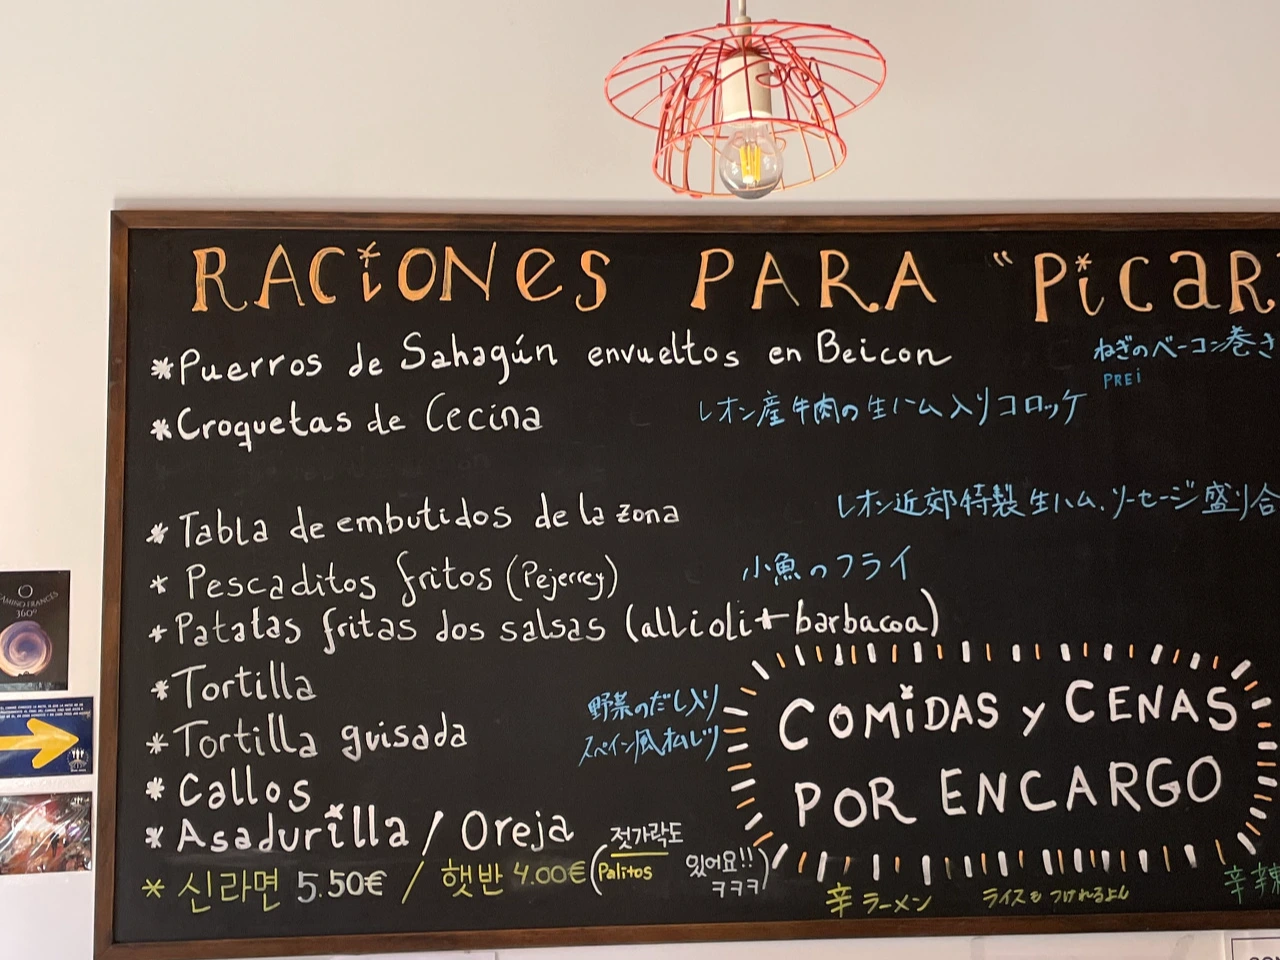 RACiONES PARA "PiCAR
*Puerros de Sahagún envueltos en Beicon
ねぎのベーコン巻き
PREi
*Croquetas de Cecina
レオン産牛肉の生ハム入りコロッケ
*Tabla de embutidos de la zona
レオン近郊特製生ハム、ソーセージ盛り合
*Pescaditos fritos (Pejerrey)
小魚のフライ
*Patatas fritas dos salsas (allioli+barbacoa)
*Tortilla
*Tortilla guisada
野菜のだし入り
スペイン風
*Callos
*Asadurilla / Oreja
COMiDAS y CENAS
POR ENCARGO
*신라면 5.50€ / 햇반 4.00€ (젓가락도
Palitos
있어요!!
ㅋㅋㅋ)
辛ラーメン
ライスも つけれるよん
辛辣
CAMINO FRANCÉS
360º